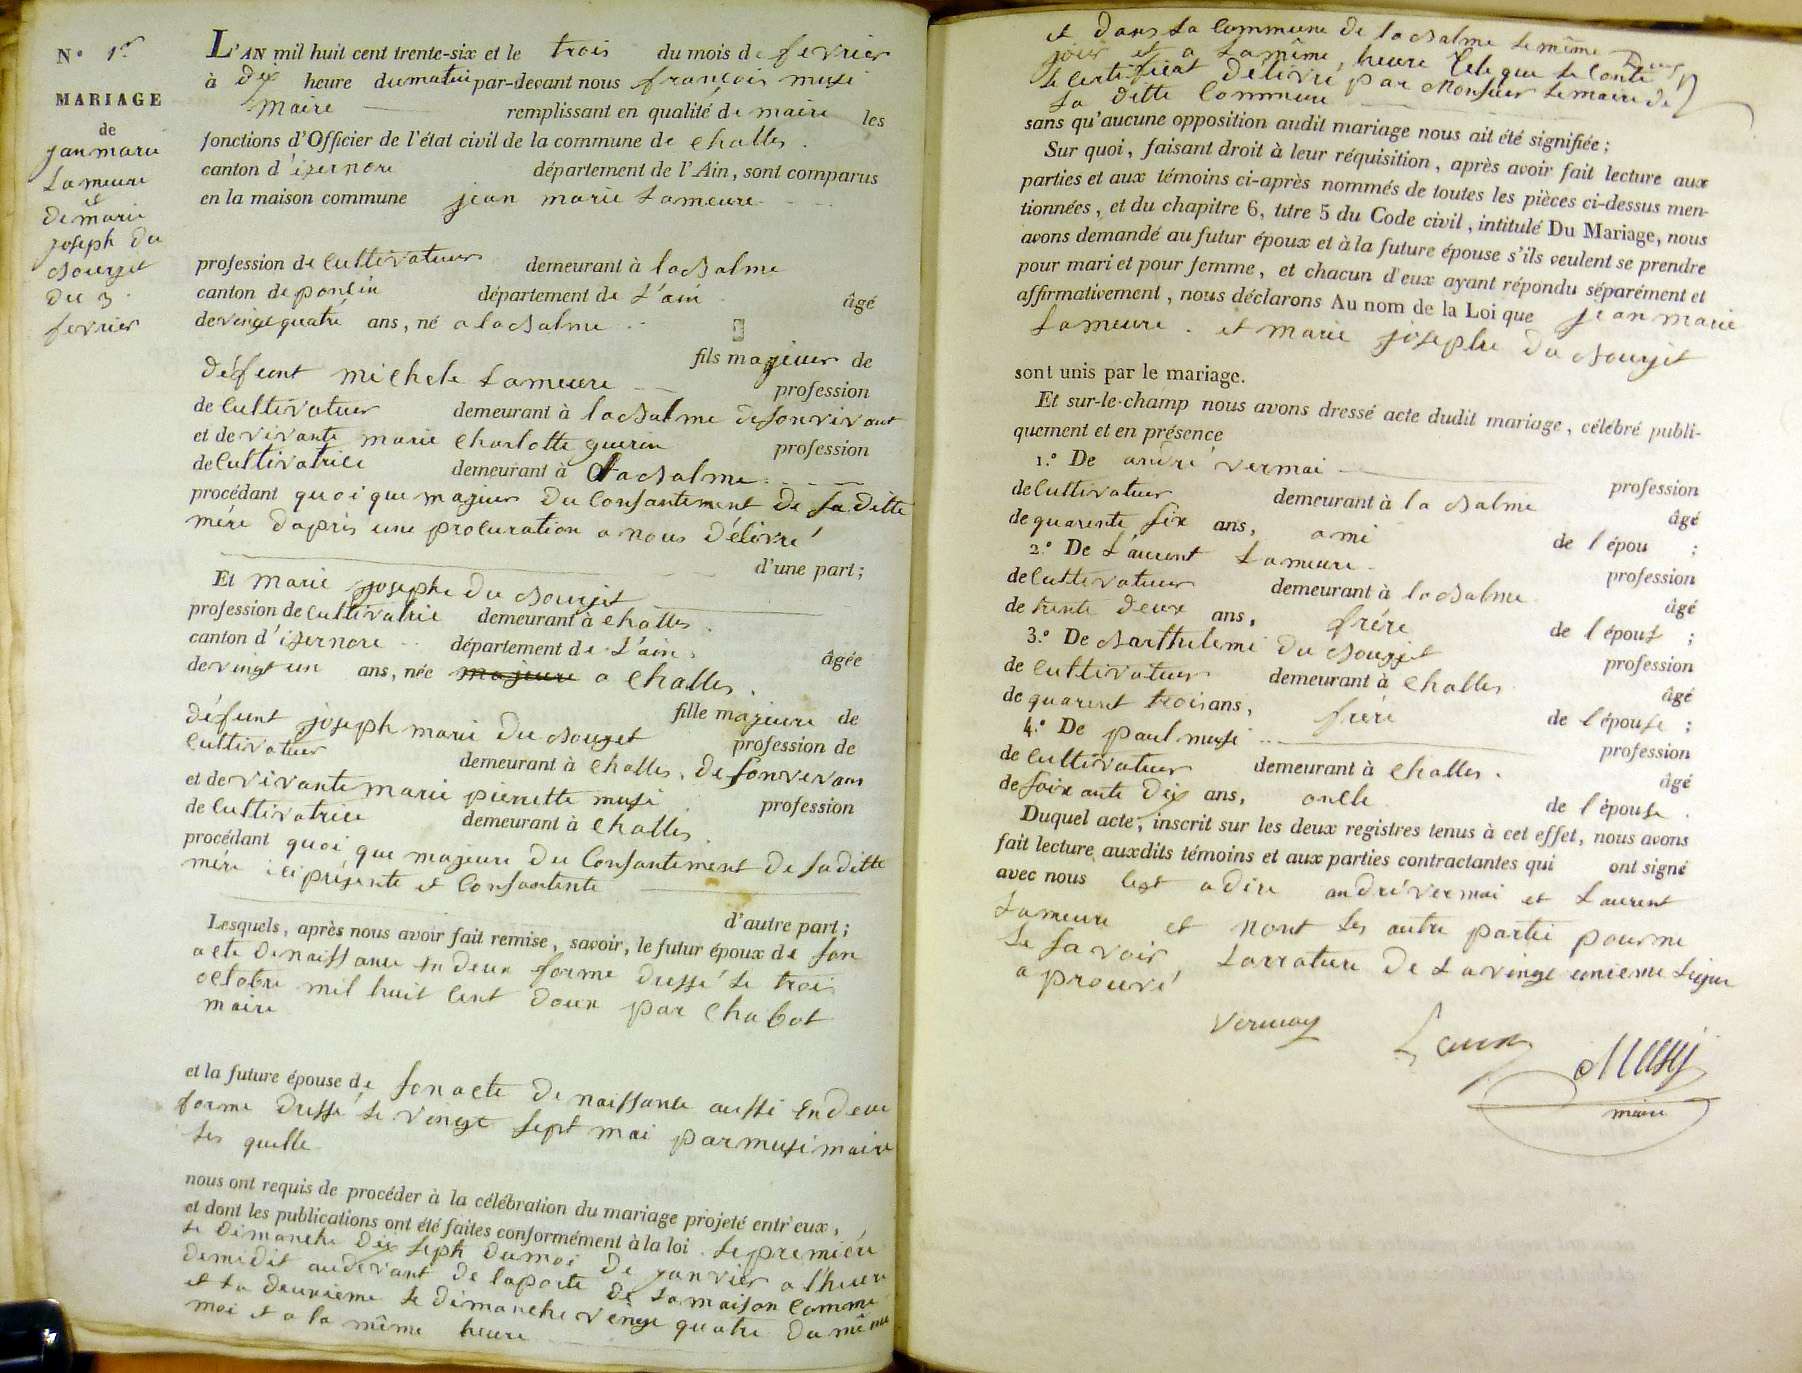 N.° 1er
MARIAGE
de
jean marie
Lameure
et
de marie
joseph du
Bourget
du 3
fevrier
L'AN mil huit cent trente-six et le trois du mois de fevrier
à dix heure du matin par-devant nous françois musi
Maire remplissant en qualité de maire les
fonctions d'Officier de l'état civil de la commune de challes.
canton d'izernore département de l'Ain, sont comparus
en la maison commune jean marie Lameure
profession de cultivateur demeurant à la Balme
canton de poncin département de L'ain âgé
de vingt quatre ans, né a la Balme
fils majeur de
défunt michele Lameure profession
de cultivateur demeurant à la Balme de son vivant
et de vivante marie charlotte guerin profession
de cultivatrice demeurant à La Balme
procédant quoi que majeur du consantement de sa ditte
mére dapris une procuration a nous délivré
d'une part;
Et marie josephe du Bourget
profession de cultivatrie demeurant à challes.
canton d'izernore département de L'ain. âgée
de vingt un ans, née majeure a challes.
fille majeure de
défunt joseph marie du Bouget profession de
cultivateur demeurant à challes, de son vivans
et de vivante marie pierrette musi profession
de cultivatrice demeurant à challes
procédant quoi que majeure du consantement de sa ditte
mére ici présente et consantente
d'autre part;
Lesquels, après nous avoir fait remise, savoir, le futur époux de son
acte de naissance en deux forme dressé le trois
octobre mil huit cent douze par chabot
maire
et la future épouse de son acte de naissance aussi en deue
forme dressé le vingt sept mai par musi maire
les quelle
nous ont requis de procéder à la célébration du mariage projeté entr'eux,
et dont les publications ont été faites conformément à la loi. le premiére
le dimanche dix seph du moi de janvier a l'heure
de midit au devant de la porte de la maison commu
et la deuxieme le dimanche vingt quatre du même
moi et a la même heure
et dans la commune de la Balme le même
jour et a la même heure tele que le conte
le certificat délivré par Monsieur le maire de
la ditte commune
sans qu'aucune opposition audit mariage nous ait été signifiée;
Sur quoi, faisant droit à leur réquisition, après avoir fait lecture aux
parties et aux témoins ci-après nommés de toutes les pièces ci-dessus men-
tionnées, et du chapitre 6, titre 5 du Code civil, intitulé Du Mariage, nous
avons demandé au futur époux et à la future épouse s'ils veulent se prendre
pour mari et pour femme, et chacun d'eux ayant répondu séparément et
affirmativement, nous déclarons Au nom de la Loi que jean marie
Lameure. et marie josephe du Bourget
sont unis par le mariage.
Et sur-le-champ nous avons dressé acte dudit mariage, célébré publi-
quement et en présence
1.° De andré vermai profession
de cultivateur demeurant à la Balme âgé
de quarente six ans, ami de l'épou ;
2.° De Laurent Lameure profession
de cultivateur demeurant à la Balme âgé
de trente deux ans, frére de l'épous ;
3.° De Barthelemi du Bourget profession
de cultivateur demeurant à challes âgé
de quarent trois ans, frére de l'épouse ;
4.° De paul musi profession
de cultivateur demeurant à challes. âgé
de soixante dix ans, oncle de l'épouse.
Duquel acte, inscrit sur les deux registres tenus à cet effet, nous avons
fait lecture auxdits témoins et aux parties contractantes qui ont signé
avec nous cest a dire andré vermai et Laurent
Lameure et nont les autre partie pour ne
le savoir Larrature de la vingt unieme ligne
a prouvé
Vermay
Musy
maire